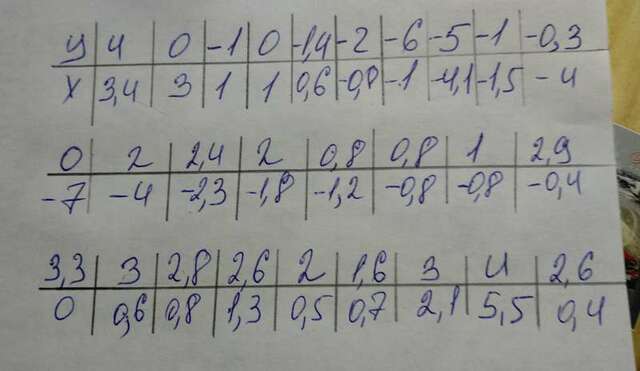 y 4 0 -1 0 -1,4 -2 -6 -5 -1 -0,3
x 3,4 3 1 1 0,6 -0,8 -1 -4,1 -1,5 -4
0 2 2,4 2 0,8 0,8 1 2,9
-7 -4 -2,3 -1,8 -1,2 -0,8 -0,8 -0,4
3,3 3 2,8 2,6 2 1,6 3 4 2,6
0 0,6 0,8 1,3 0,5 0,7 2,1 5,5 0,4